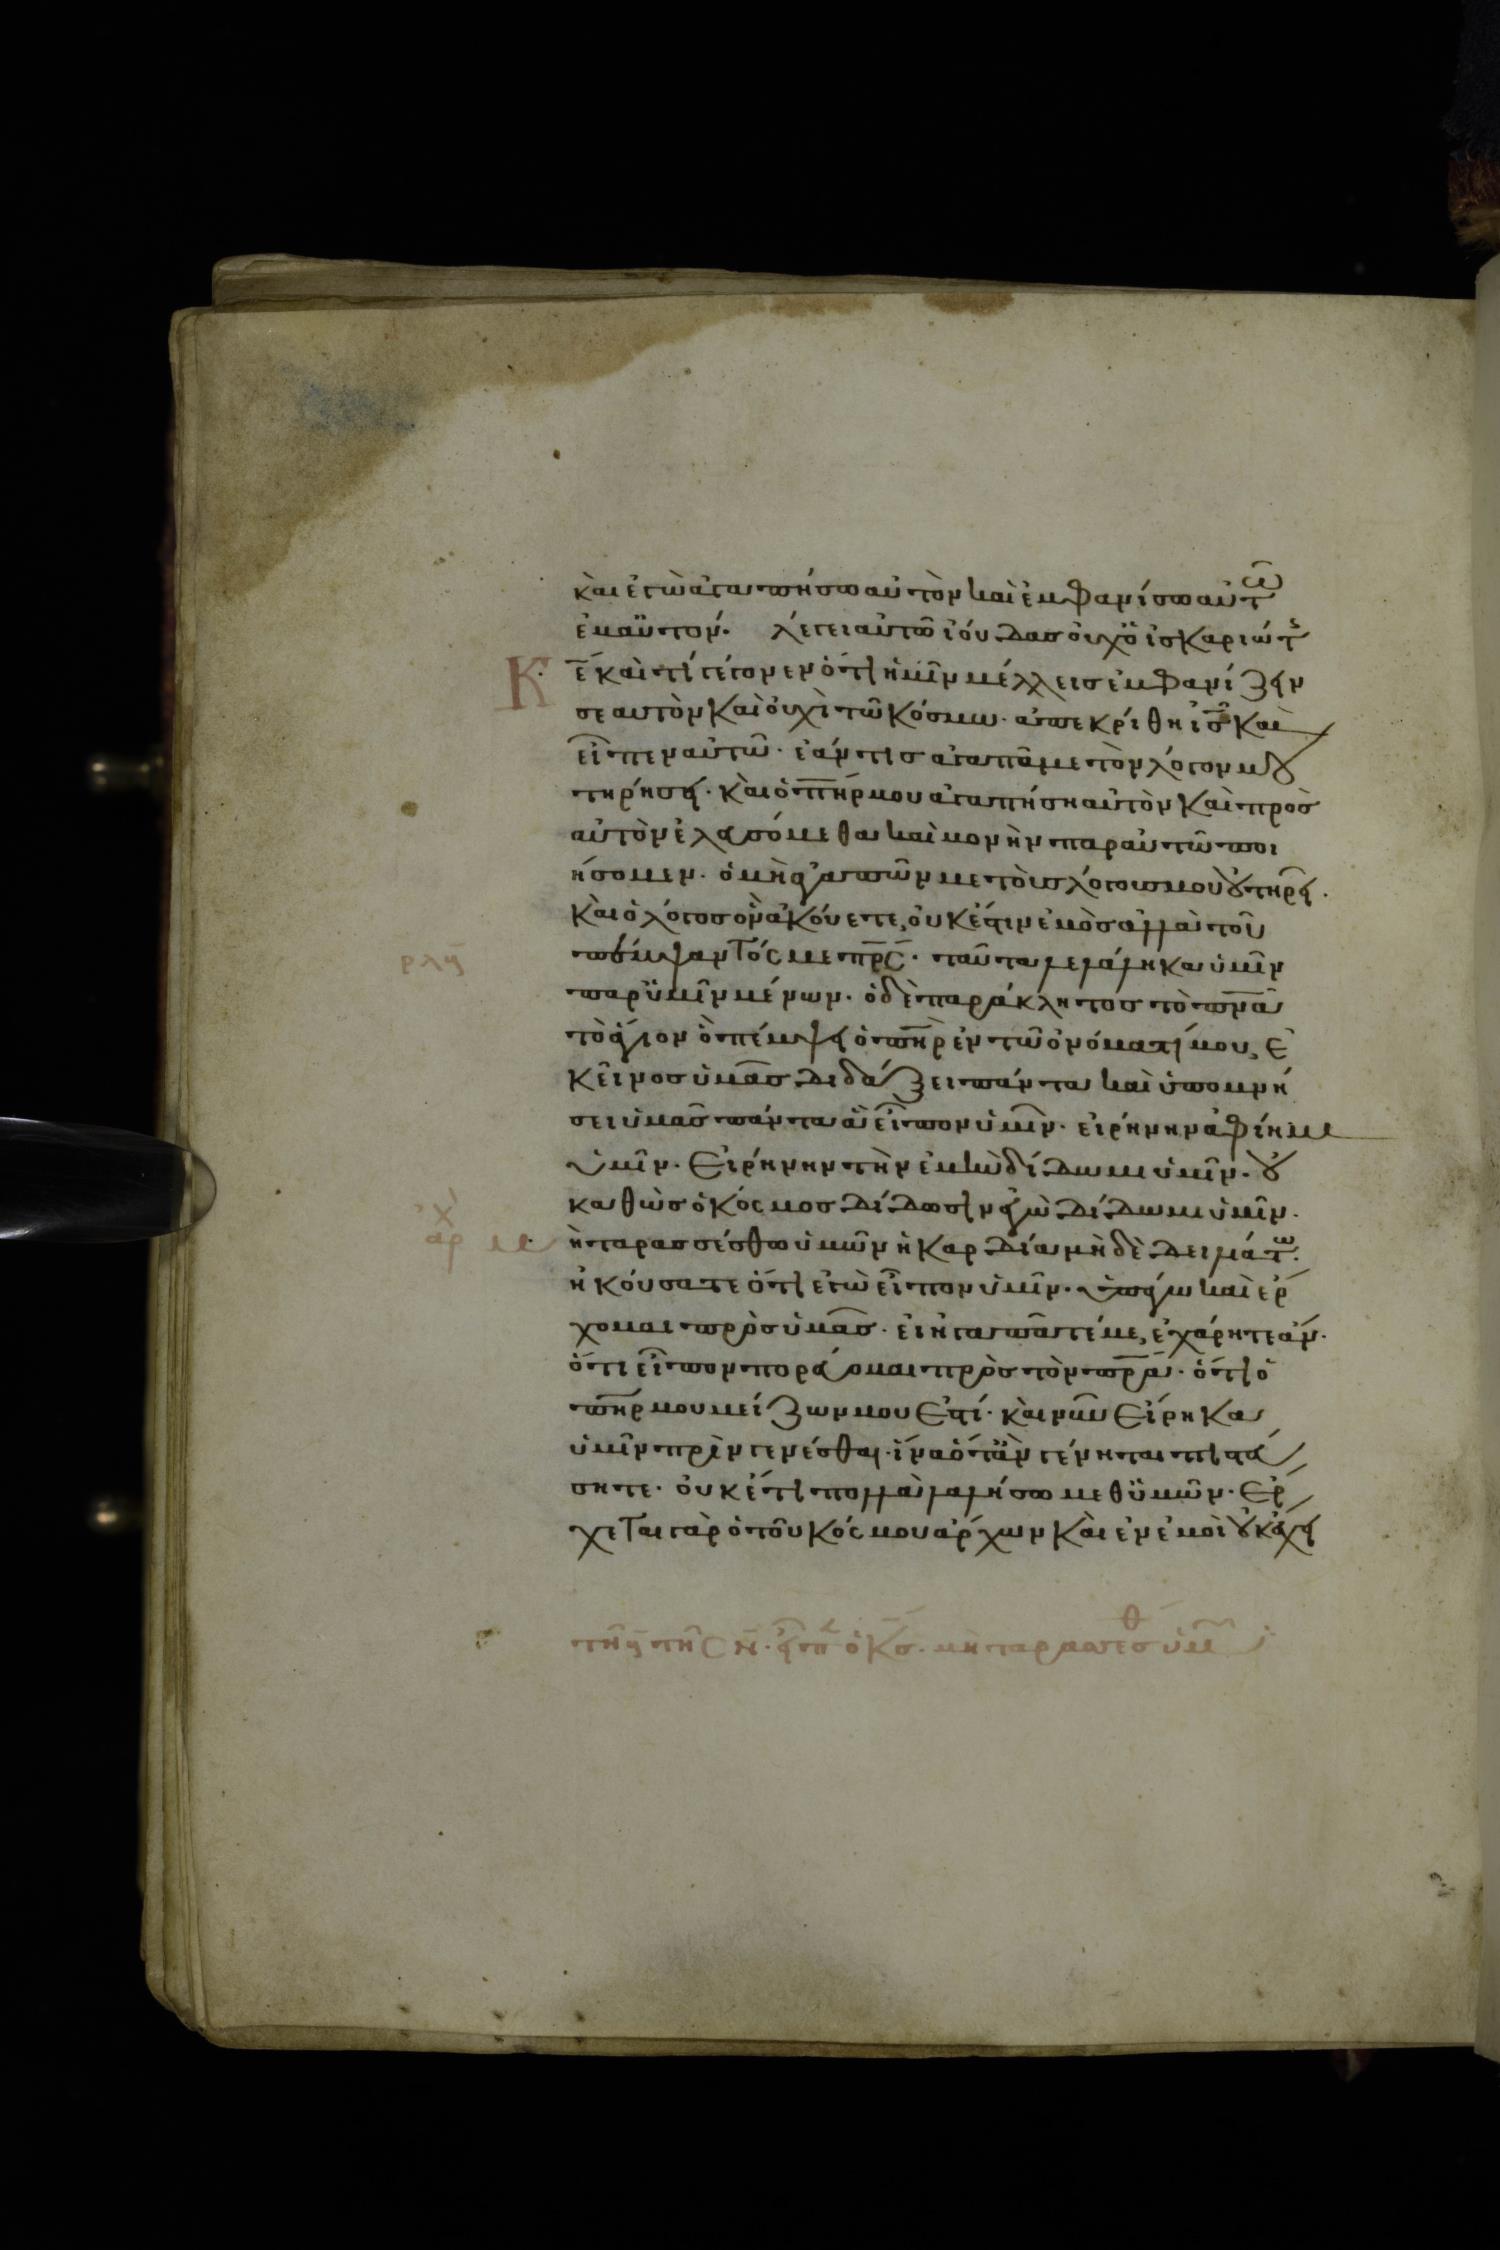 καὶ ἐγὼ ἀγαπήσω αὐτὸν καὶ ἐμφανίσω αὐτῶ
ἐμαὐτόν. λέγει αὐτῶ ἰούδασ οὐχ ὁ ἰσκαριώτ
κε καὶ τί γέγονεν ὅτι ἡμῖν μέλλεισ ἐμφανίζειν
σεαυτὸν καὶ οὐχὶ τῶ κόσμω. ἀπεκρίθη ισ καὶ
εἶπεν αὐτῶ. ἐάν τισ ἀγαπᾶ με τὸν λόγον μου
τηρήσει. καὶ ὁ πηρ μου ἀγαπήση αὐτὸν καὶ πρὸσ
αὐτὸν ἐλευσόμεθα καὶ μονὴν παρ αὐτῶ ποι
ήσομεν. ὁ μὴ ἀγαπῶν με τοὺσ λόγουσ μου οὐ τηρεῖ.
καὶ ὁ λόγοσ ὃν ἀκούετε, οὐκ ἔστιν ἐμὸσ ἀλλὰ τοῦ
πέμψαντός με πρς. ταῦτα λελάληκα ὑμῖν
παρ ὑμῖν μένων. ὁ δὲ παράκλητοσ τὸ πνα
τὸ ἅγιον ὃ πέμψει ὁ πηρ ἐν τῶ ὀνόματί μου, ἐ
κεῖνοσ ὑμᾶσ διδάξει πάντα καὶ ὑπομνή
σει ὑμᾶσ πάντα ἃ εἶπον ὑμῖν. εἰρήνην ἀφίημι
ὑμῖν. εἰρήνην τὴν ἐμὴν δίδωμι ὑμῖν. οὐ
καθὼσ ὁ κόσμοσ δίδωσιν ἐγὼ δίδωμι ὑμῖν.
μὴ ταρασσέσθω ὑμῶν ἡ καρδία μὴ δὲ δειλιάτω.
ἠκούσατε ὅτι ἐγὼ εἶπον ὑμῖν. ὑπάγω καὶ ἔρ
χομαι πρὸσ ὑμᾶσ. εἰ ἠγαπᾶτέ με, ἐχάρητε ἄν.
ὅτι εἶπον πορεύομαι πρὸσ τὸν πρα. ὅτι ὁ
πηρ μου μείζων μου ἐστί. καὶ νῦν εἴρηκα
ὑμῖν πρὶν γενέσθαι. ἵνα ὅταν γένηται πιστεύ
σητε. οὐκέτι πολλὰ λαλήσω μεθ ὑμῶν. ἔρ
χεται γὰρ ὁ τοῦ κόσμου ἄρχων καὶ ἐν ἐμοὶ οὐκ ἔχει
ρλη
αρχ